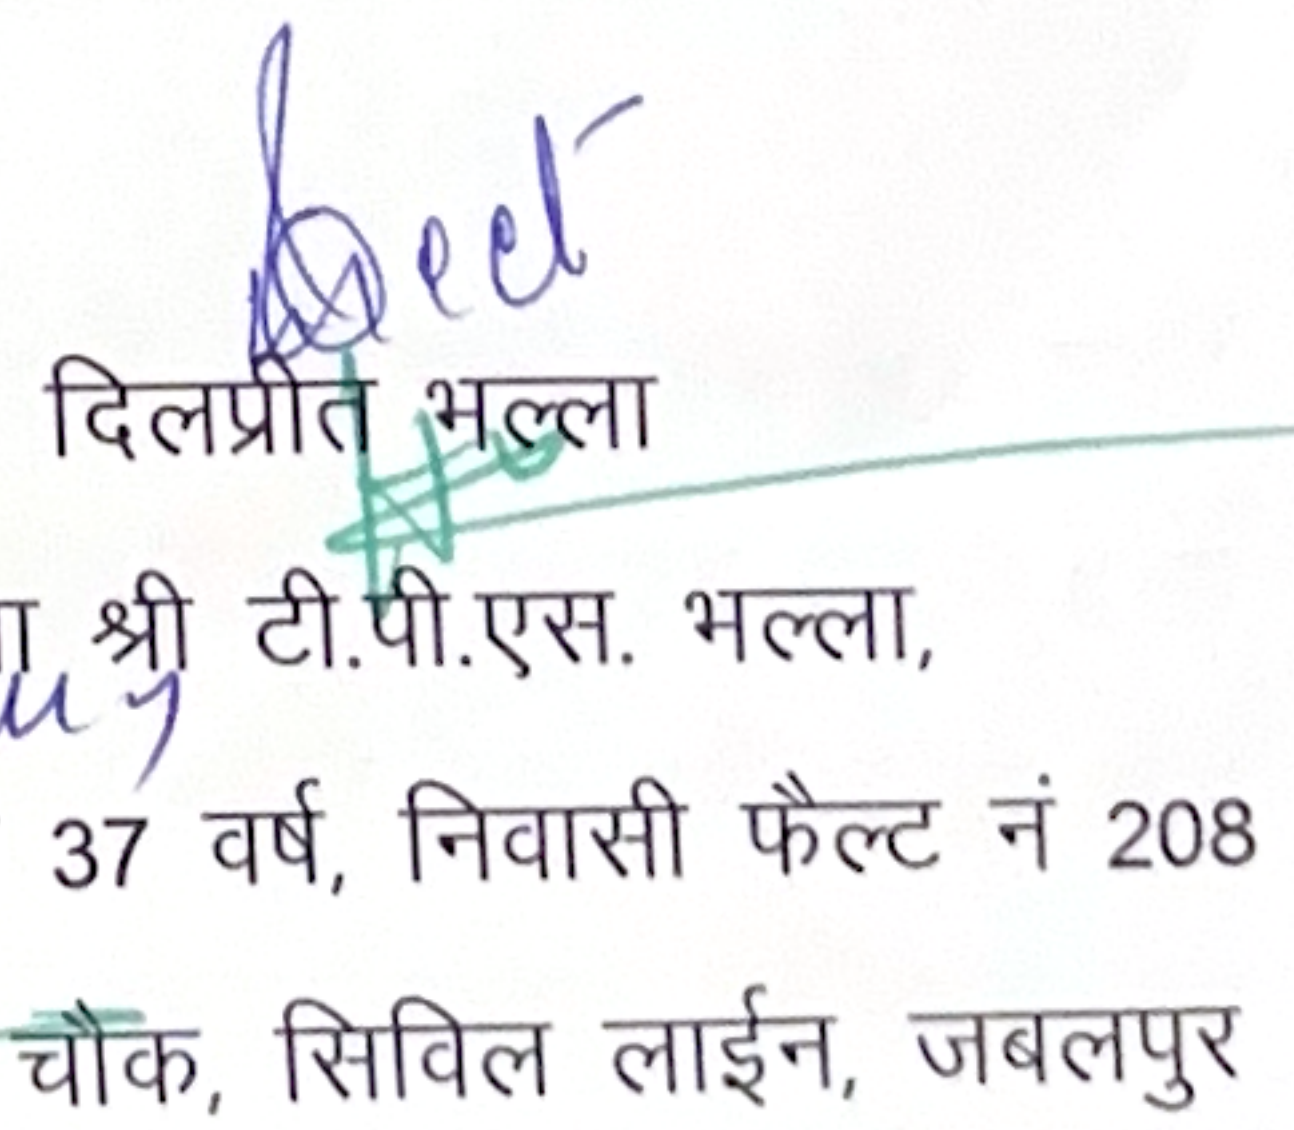 दिलप्रीत भल्ला
श्री टी.पी.एस. भल्ला,
37 वर्ष, निवासी फैल्ट नं 208
चौक, सिविल लाईन, जबलपुर